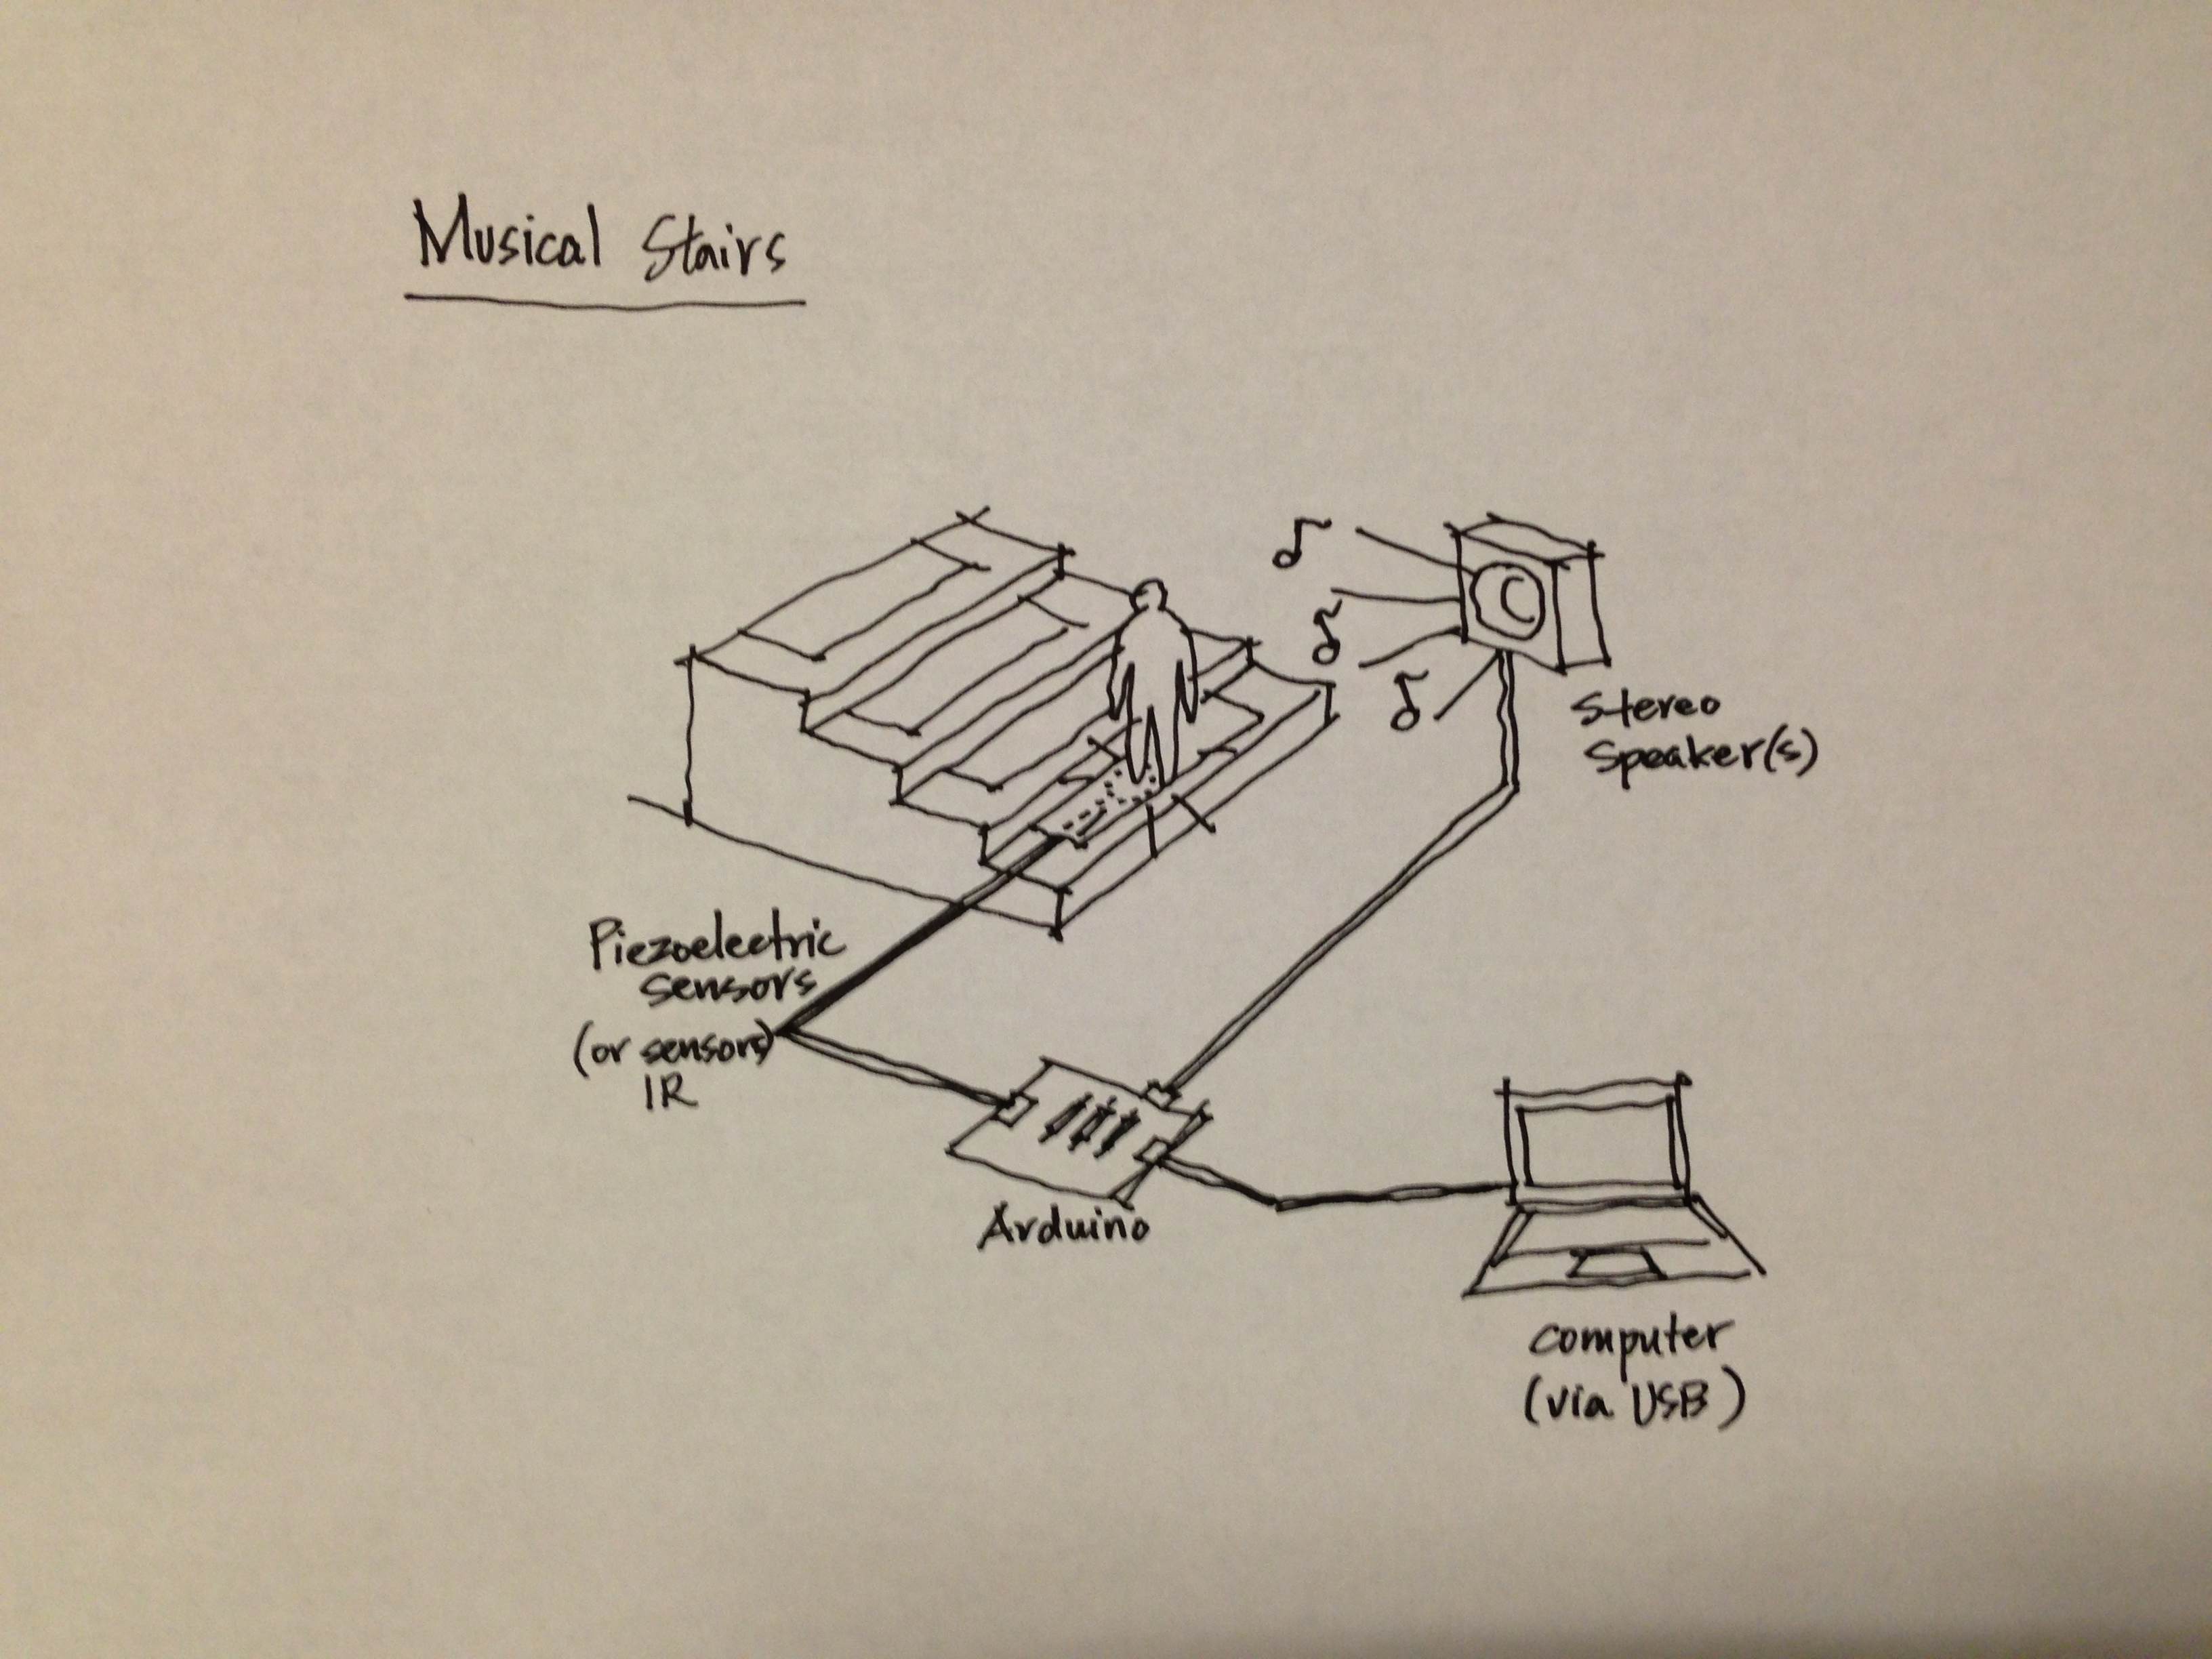 Musical Stairs
Stereo
Speaker(s)
Piezoelectric
sensors
(or sensors)
IR
Arduino
computer
(via USB)